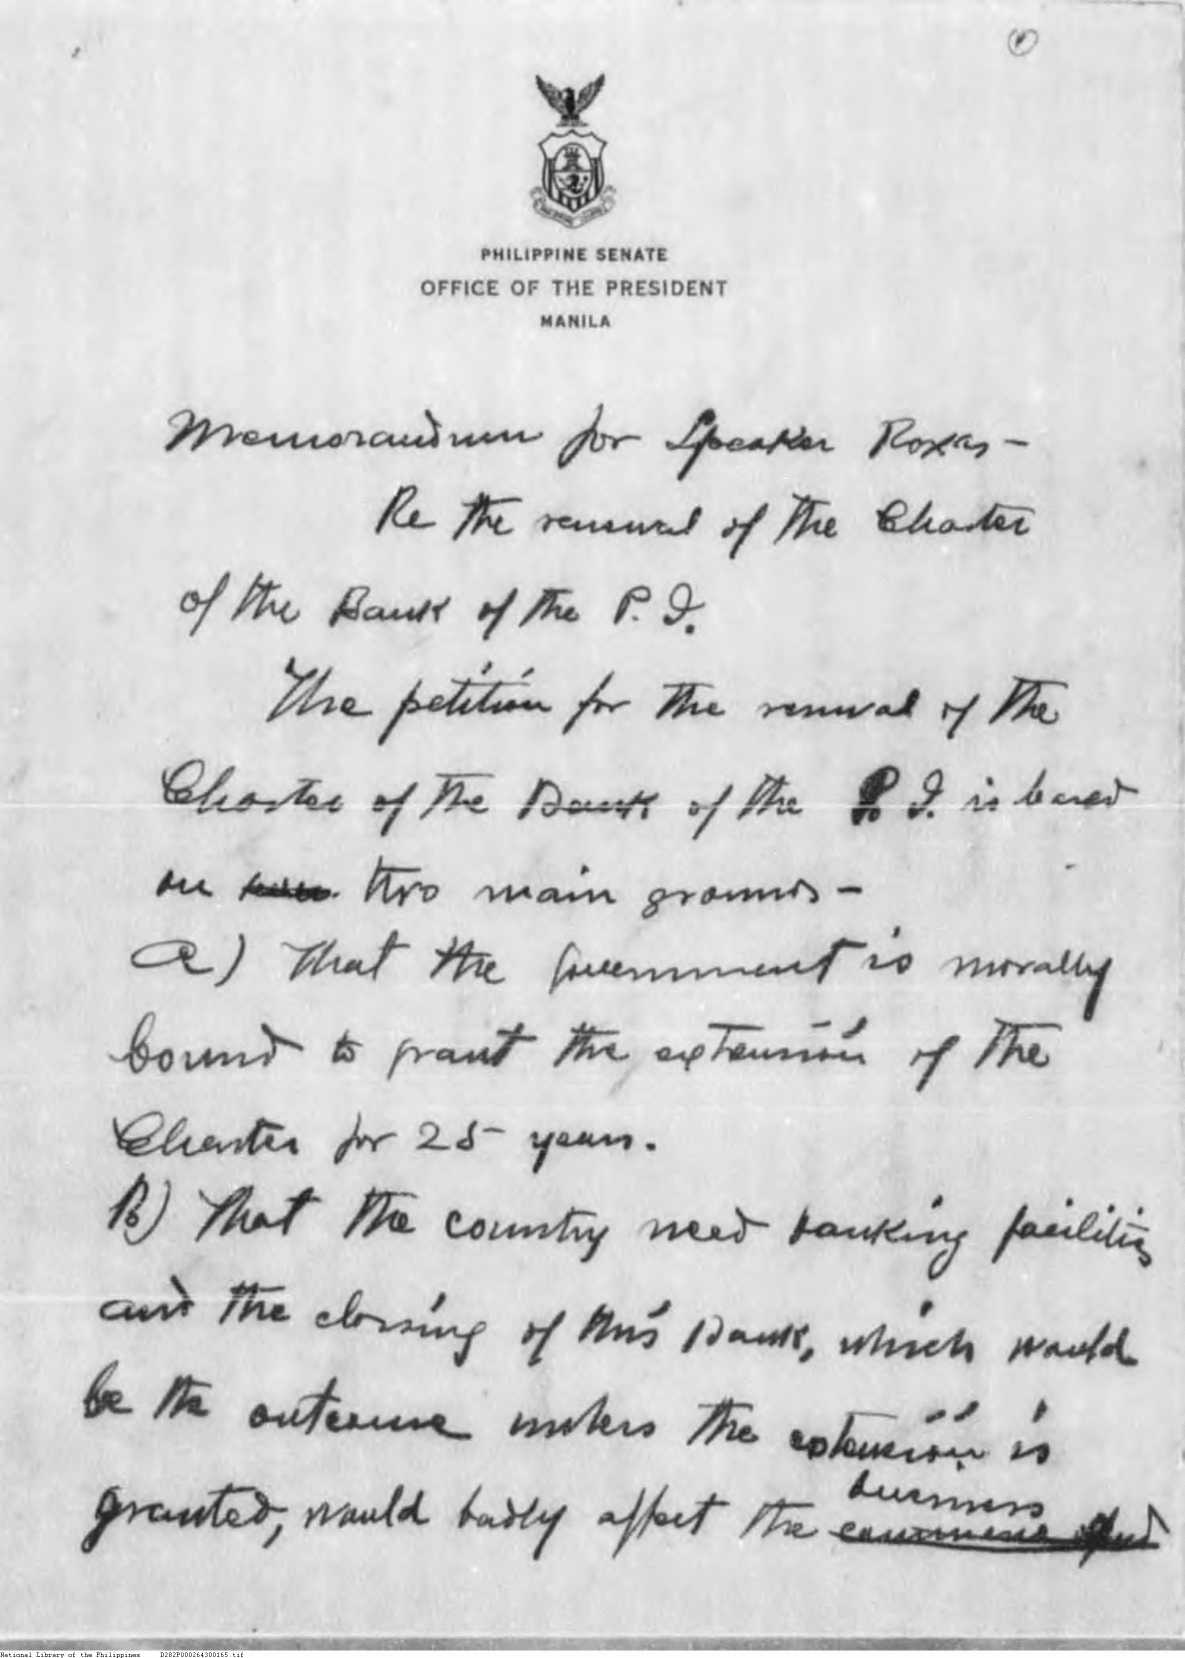 PHILIPPINE SENATE
OFFICE OF THE PRESIDENT
MANILA
Memorandum for Speaker Roxas—
Re the renewal of the Charter
of the Bank of the P. I.
The petition for the renewal of the
Charter of the Bank of the P. I. is based
on two main grounds—
a) That the Government is morally
bound to grant the extension of the
Charter for 25 years.
B) That the country need banking facilities
and the closing of this Bank, which would
be the outcome unless the extension is
business
granted, would badly affect the commerce and
National Library of the Philippines D282P000264300165.tif